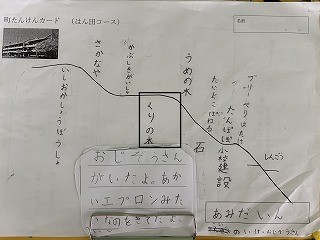 町たんけんカード （はん田コース）
名前
さかなや
いしおかしょうぼうしょ
かぶしきがいしゃ
うめの木
くりの木
石
ブルーベリばたけ
たんぽぽ
小林建設
しんごう
おじぞうさん
がいたよ。あか
いエプロンみた
いなのをきてたよ。
あみだいん